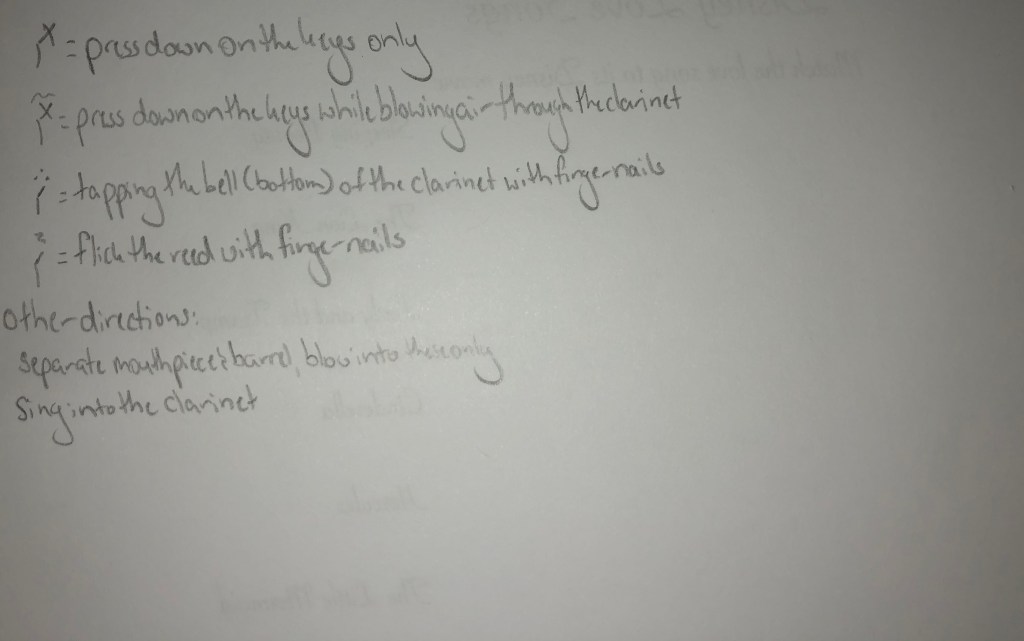 x = press down on the keys only
x̃ = press down on the keys while blowing air through the clarinet
= tapping the bell (bottom) of the clarinet with fingernails
= flick the reed with fingernails
Other directions:
Separate mouthpiece & barrel, blow into these only
Sing into the clarinet